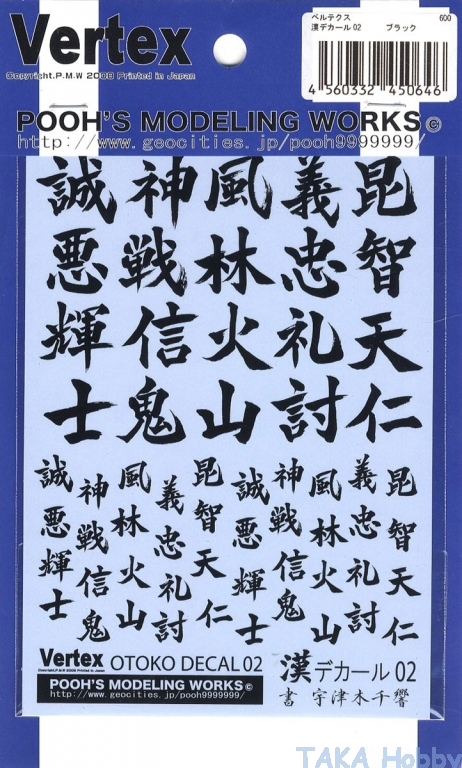 Vertex
Copyright.P.M.W 2008 Printed in Japan
ベルテクス 600
漢デカール02 ブラック
4 560332 450646
POOH'S MODELING WORKS©
http://www.geocities.jp/pooh9999999/
誠神風義昆
悪戦林忠智
輝信火礼天
士鬼山討仁
誠神風義昆誠神風義昆
悪戦林忠智悪戦林忠智
輝信火礼天輝信火礼天
士鬼山討仁士鬼山討仁
Vertex OTOKO DECAL 02
Copyright.P.M.W 2008 Printed in Japan
POOH'S MODELING WORKS©
http://www.geocities.jp/pooh9999999/
漢デカール 02
書 宇津木千響
TAKA Hobby